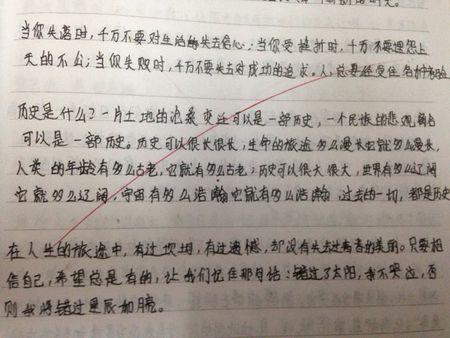 当你失落时，千万不要对生活失去信心；当你受挫折时，千万不要埋怨上
天的不公；当你失败时，千万不要失去对成功的追求。人，总要经受住各种考验
历史是什么？一片土地的沧桑变迁可以是一部历史，一个民族的悲观离合
可以是一部历史。历史可以很长很长，生命的旅途多么漫长它就多么漫长，
人类的年龄有多么古老，它就有多么古老；历史可以很大很大，世界有多么辽阔
它就多么辽阔，宇宙有多么浩瀚它就有多么浩瀚，过去的一切，都是历史
在人生的旅途中，有过坎坷，有过遗憾，却没有失去过青春的美丽。只要相
信自己，希望总是有的，让我们记住那句话：错过了太阳，我不哭泣，否
则我将错过星辰和月亮。